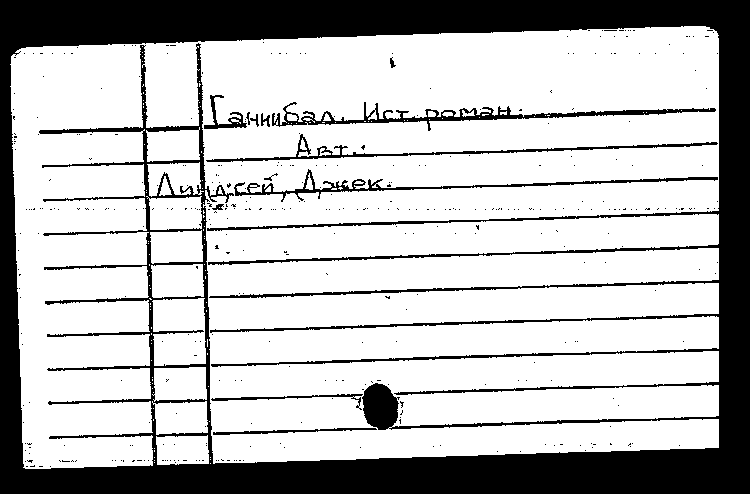 Ганнибал. Ист. роман.
Авт.:
Линдсей, Джек.